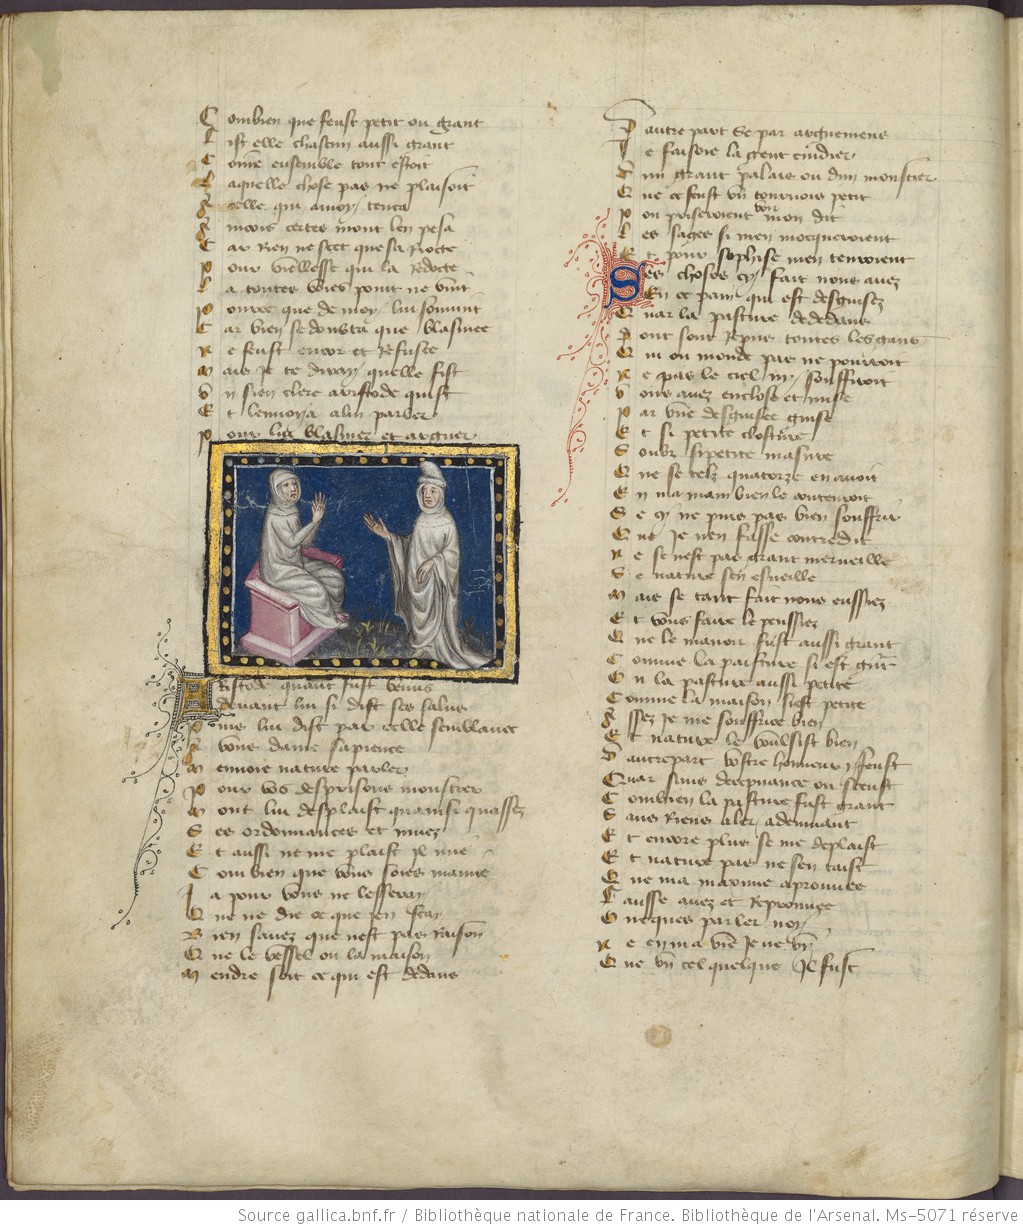 Combien que feust petit ou grant
Est elle chascun aussi grant
Comme ensemble tout estoit
Laquelle chose pas ne plaisoit
A celle qui avoy tenca
Aincois certes mont len pesa
Car Rien ne scet que sa Riote
pour viellesse qui la Redote
A toutes voies point ne vint
pource que de moy lui souvint
Car bien se doubta que blasmee
Ne feust encor et Refusee
Mais je te diray quelle fist
Vn sien clerc aristode quist
Et lenvoya a lui parler
pour lui blasmer et arguer
Aristode quant fust venus
devant lui si dist ses salus
puis lui dist par celle semblance
A vous dame sapience
Menvoie nature parler
pour vos desprisons monstrer
Mont lui desplaist quainsi quassez
Ses ordonnances et muez
Et aussi ne me plaist il mie
Combien que vous soies mamie
Ja pour vous ne lesseray
Que ne die ce que jen scay
Bien savez que nest pas Raison
Que le vessel ou la maison
Mendre soit ce qui est dedans
Dautre part se par argumens
Je faisoie la gent cuidier
Dun grant palais ou dun monstier
Que ce feust vn tournois petit
pou priseroient voir mon dit
Les sages si men mocqueroient
Et pour sophise men tenroient
Ses choses cy fait nous avez
En ce pain qui est desguisez
Quar la pasture dededans
Dont sont Repus toutes les gans
Qui ou monde pas ne pourroit
Ne pas le ciel ny souffiroit
Vous avez enclose et mise
par vne desguisee guise
Et si petite closture
Soubz si petite masure
Que se telz quatorze en avoit
En ma main bien le contenroit
Se cy ne puis pas bien souffrir
Que je nen fasse contredit
Ne se nest pas grant merveille
Se nature sen esveille
Mais se tant fait nous eussiez
Et vous faire le peussiez
Que le manoir fust aussi grant
Comme la pasture si est grant
Ou la pasture aussi petite
Comme la maison si est petite
Assez je me souffrice bien
Et nature le voulsist bien
Dautrepart vostre honneur y feust
Quar sans decepvance on sceust
Combien la pasture fust grant
Sans Riens aler adevinant
Et encore plus se me deplaist
Et nature pas ne sen taist
Que ma maxime aprouvee
Fausse avez et Reprouvee
Onques parler noy
Ne en ma vie je ne vy
Que vn tel quelque il fust
Source gallica.bnf.fr / Bibliothèque nationale de France. Bibliothèque de l'Arsenal. Ms-5071 réserve